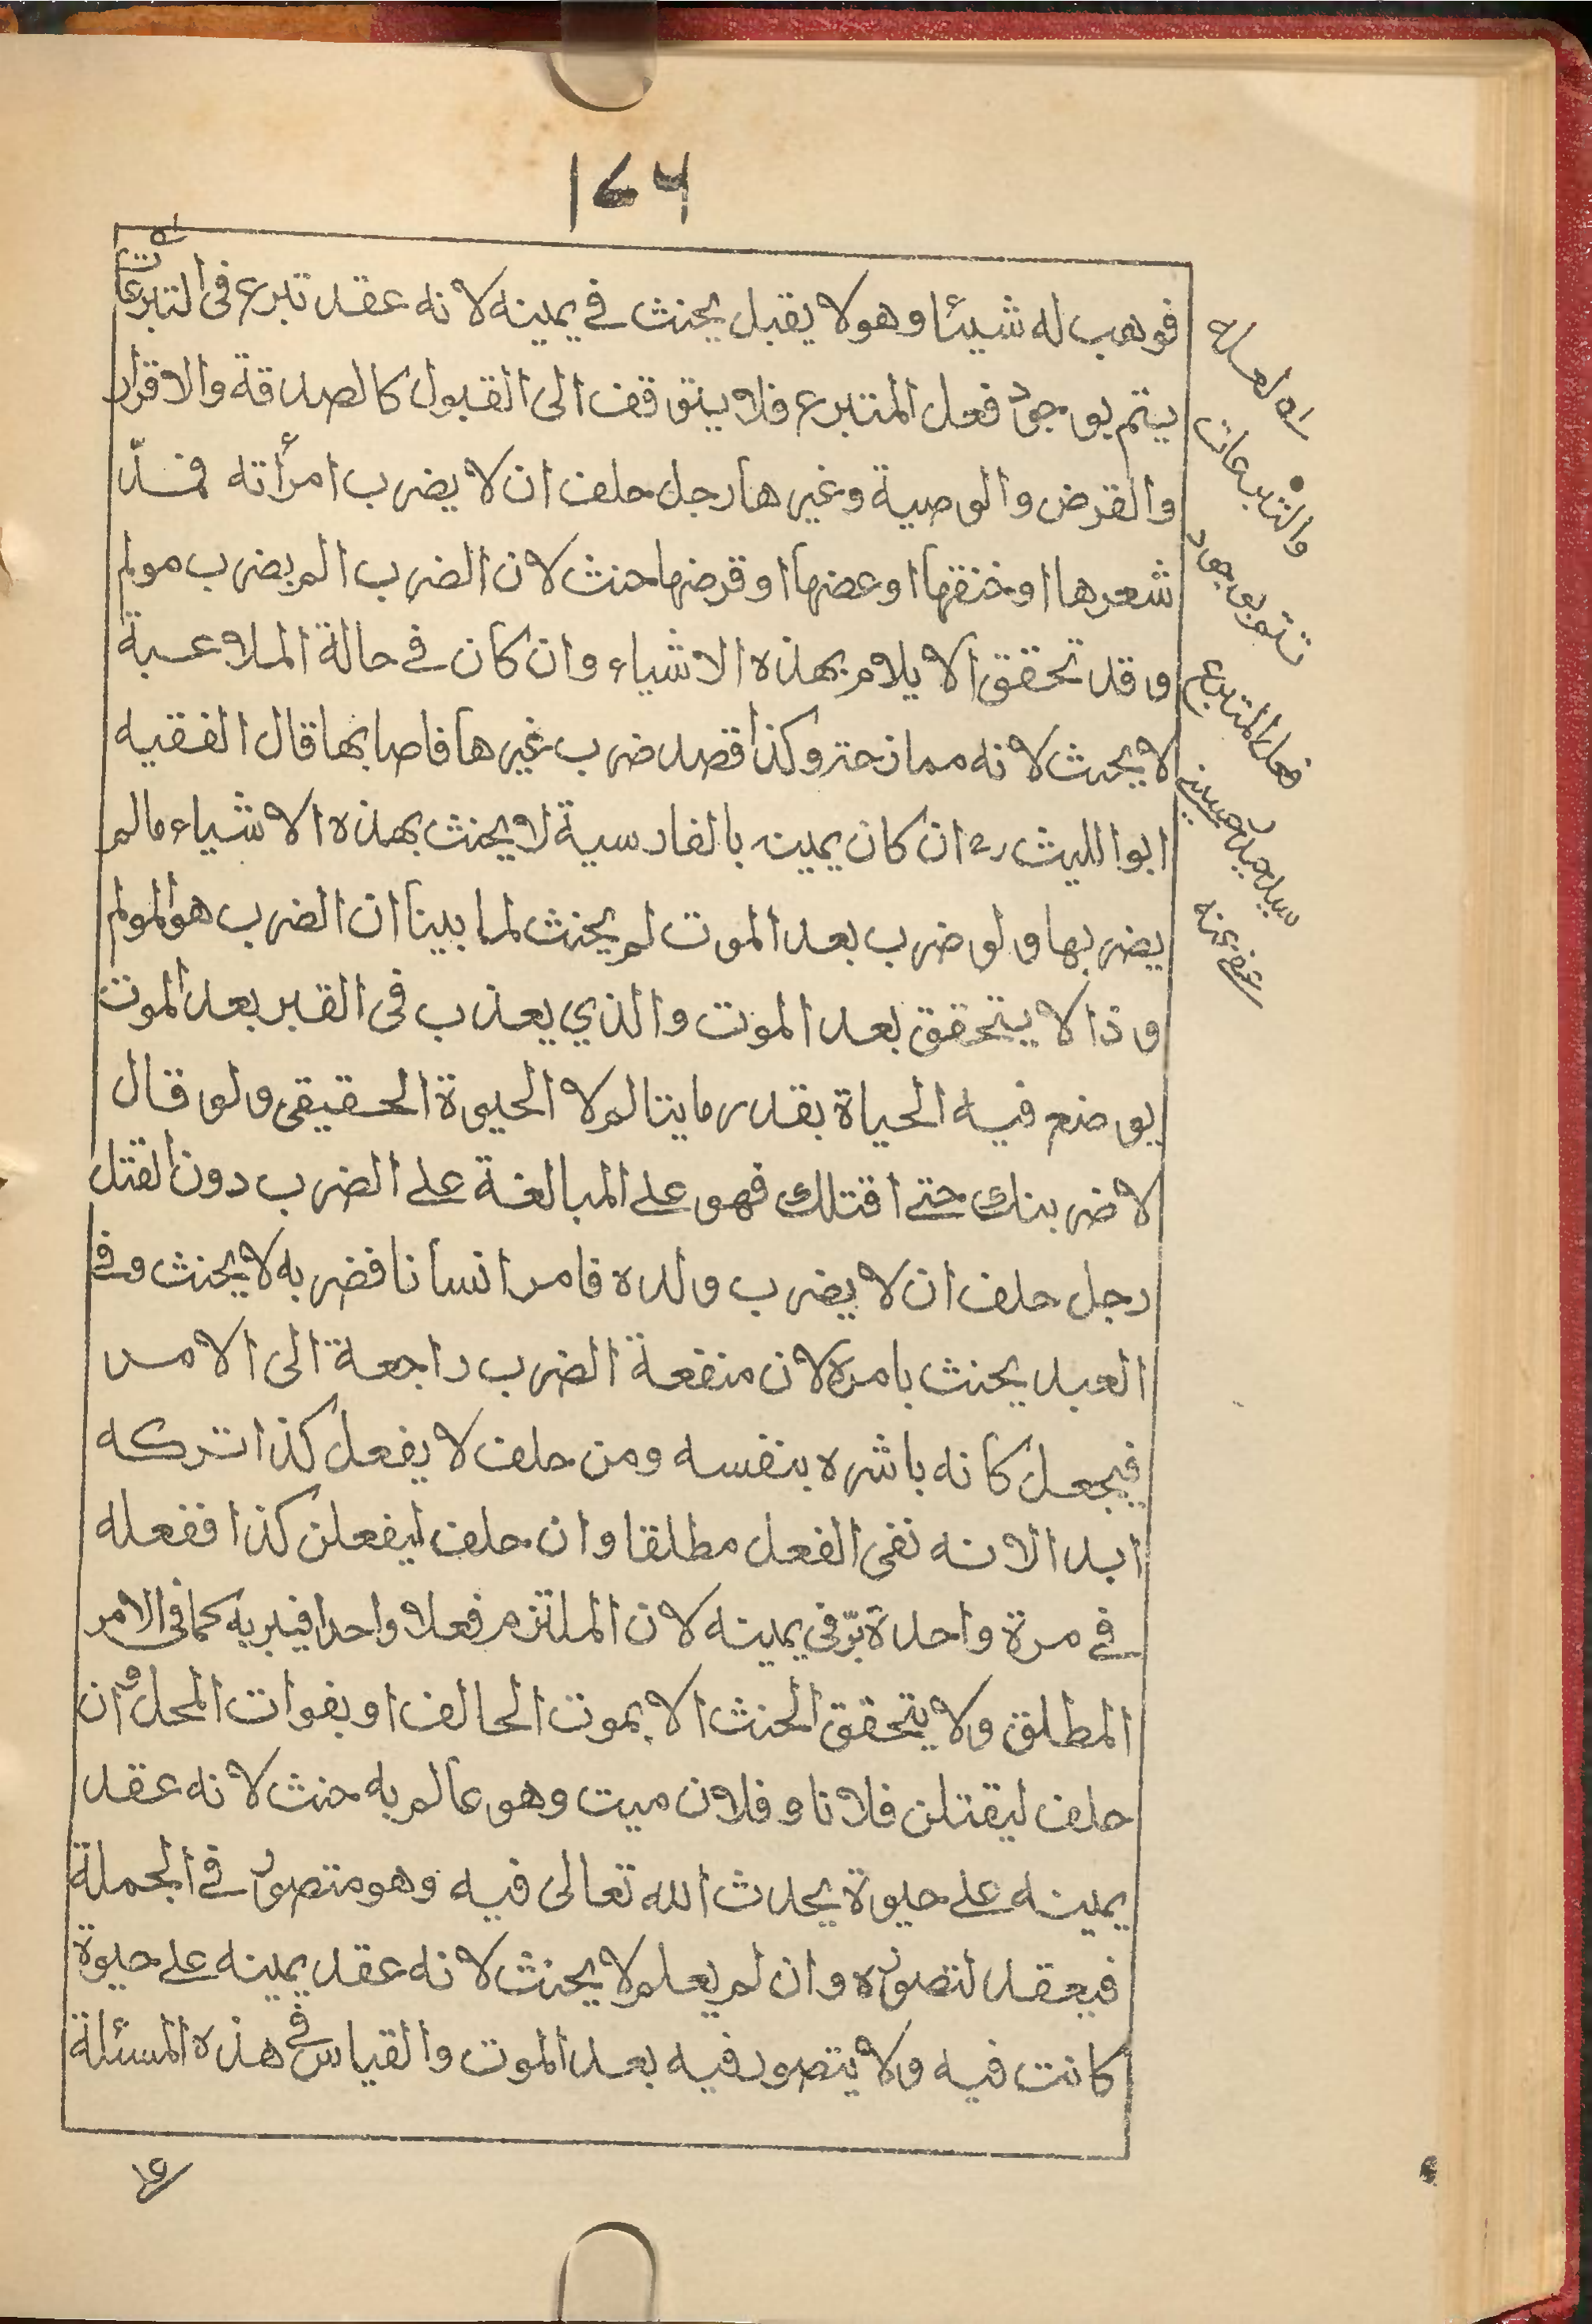 ١٧٦
فوهب له شيئا وهو لا يقبل يحنث في يمينه لانه عقد تبرع فى التبرعات
يتم بوجود فعل المتبرع فلا يتوقف الى القبول كالصدقة والاقرار
والقرض والوصية وغيرها رجل حلف ان لا يضرب امرأته فمدّ
شعرها او خنقها او عضها او قرضها حنث لان الضرب المر بضرب مولم
وقد تحقق الايلام بهذه الاشياء وان كان في حالة الملاعبة
لا يحنث لانه ممازحة وكذا قصد ضرب غيرها فاصابها قال الفقيه
ابوا لليث رح ان كان يمين بالفارسية لا يحنث بهذه الاشياء مالم
يضربها ولو ضرب بعد الموت لم يحنث لما بينا ان الضرب هو المولم
وذا لا يتحقق بعد الموت والذي يعذب فى القبر بعد الموت
يوضع فيه الحياة بقدر ما يتالم لا الحيوة الحقيقى ولو قال
لاضربنك حتے اقتلك فهو علے المبالغة علے الضرب دون القتل
رجل حلف ان لا يضرب ولده فامر انسانا فضربه لا يحنث وفے
العبد يحنث بامره لان منفعة الضرب راجعة الى الامر
فيجعل كانه باشره بنفسه ومن حلف لا يفعل كذا تركه
ابدا لانه نفى الفعل مطلقا وان حلف ليفعلن كذا ففعله
فے مرة واحدة برّ في يمينه لان الملتزم فعلا واحدا فيبر به كما فى الامر
المطلق ولا يتحقق الحنث الا بموت الحالف او بفوات المحل وان
حلف ليقتلن فلانا وفلان ميت وهو عالم به حنث لانه عقد
يمينه علے حيوة يحدث الله تعالى فيه وهو متصور فے الجملة
فيعقد لتصوره وان لم يعلم لا يحنث لانه عقد يمينه علے حيوة
كانت فيه ولا يتصور فيه بعد الموت والقياس في هذه المسئلة
لعله
والتبرعات
تتم بوجود
فعل المتبرع
سيد حسينے
عفے عنه